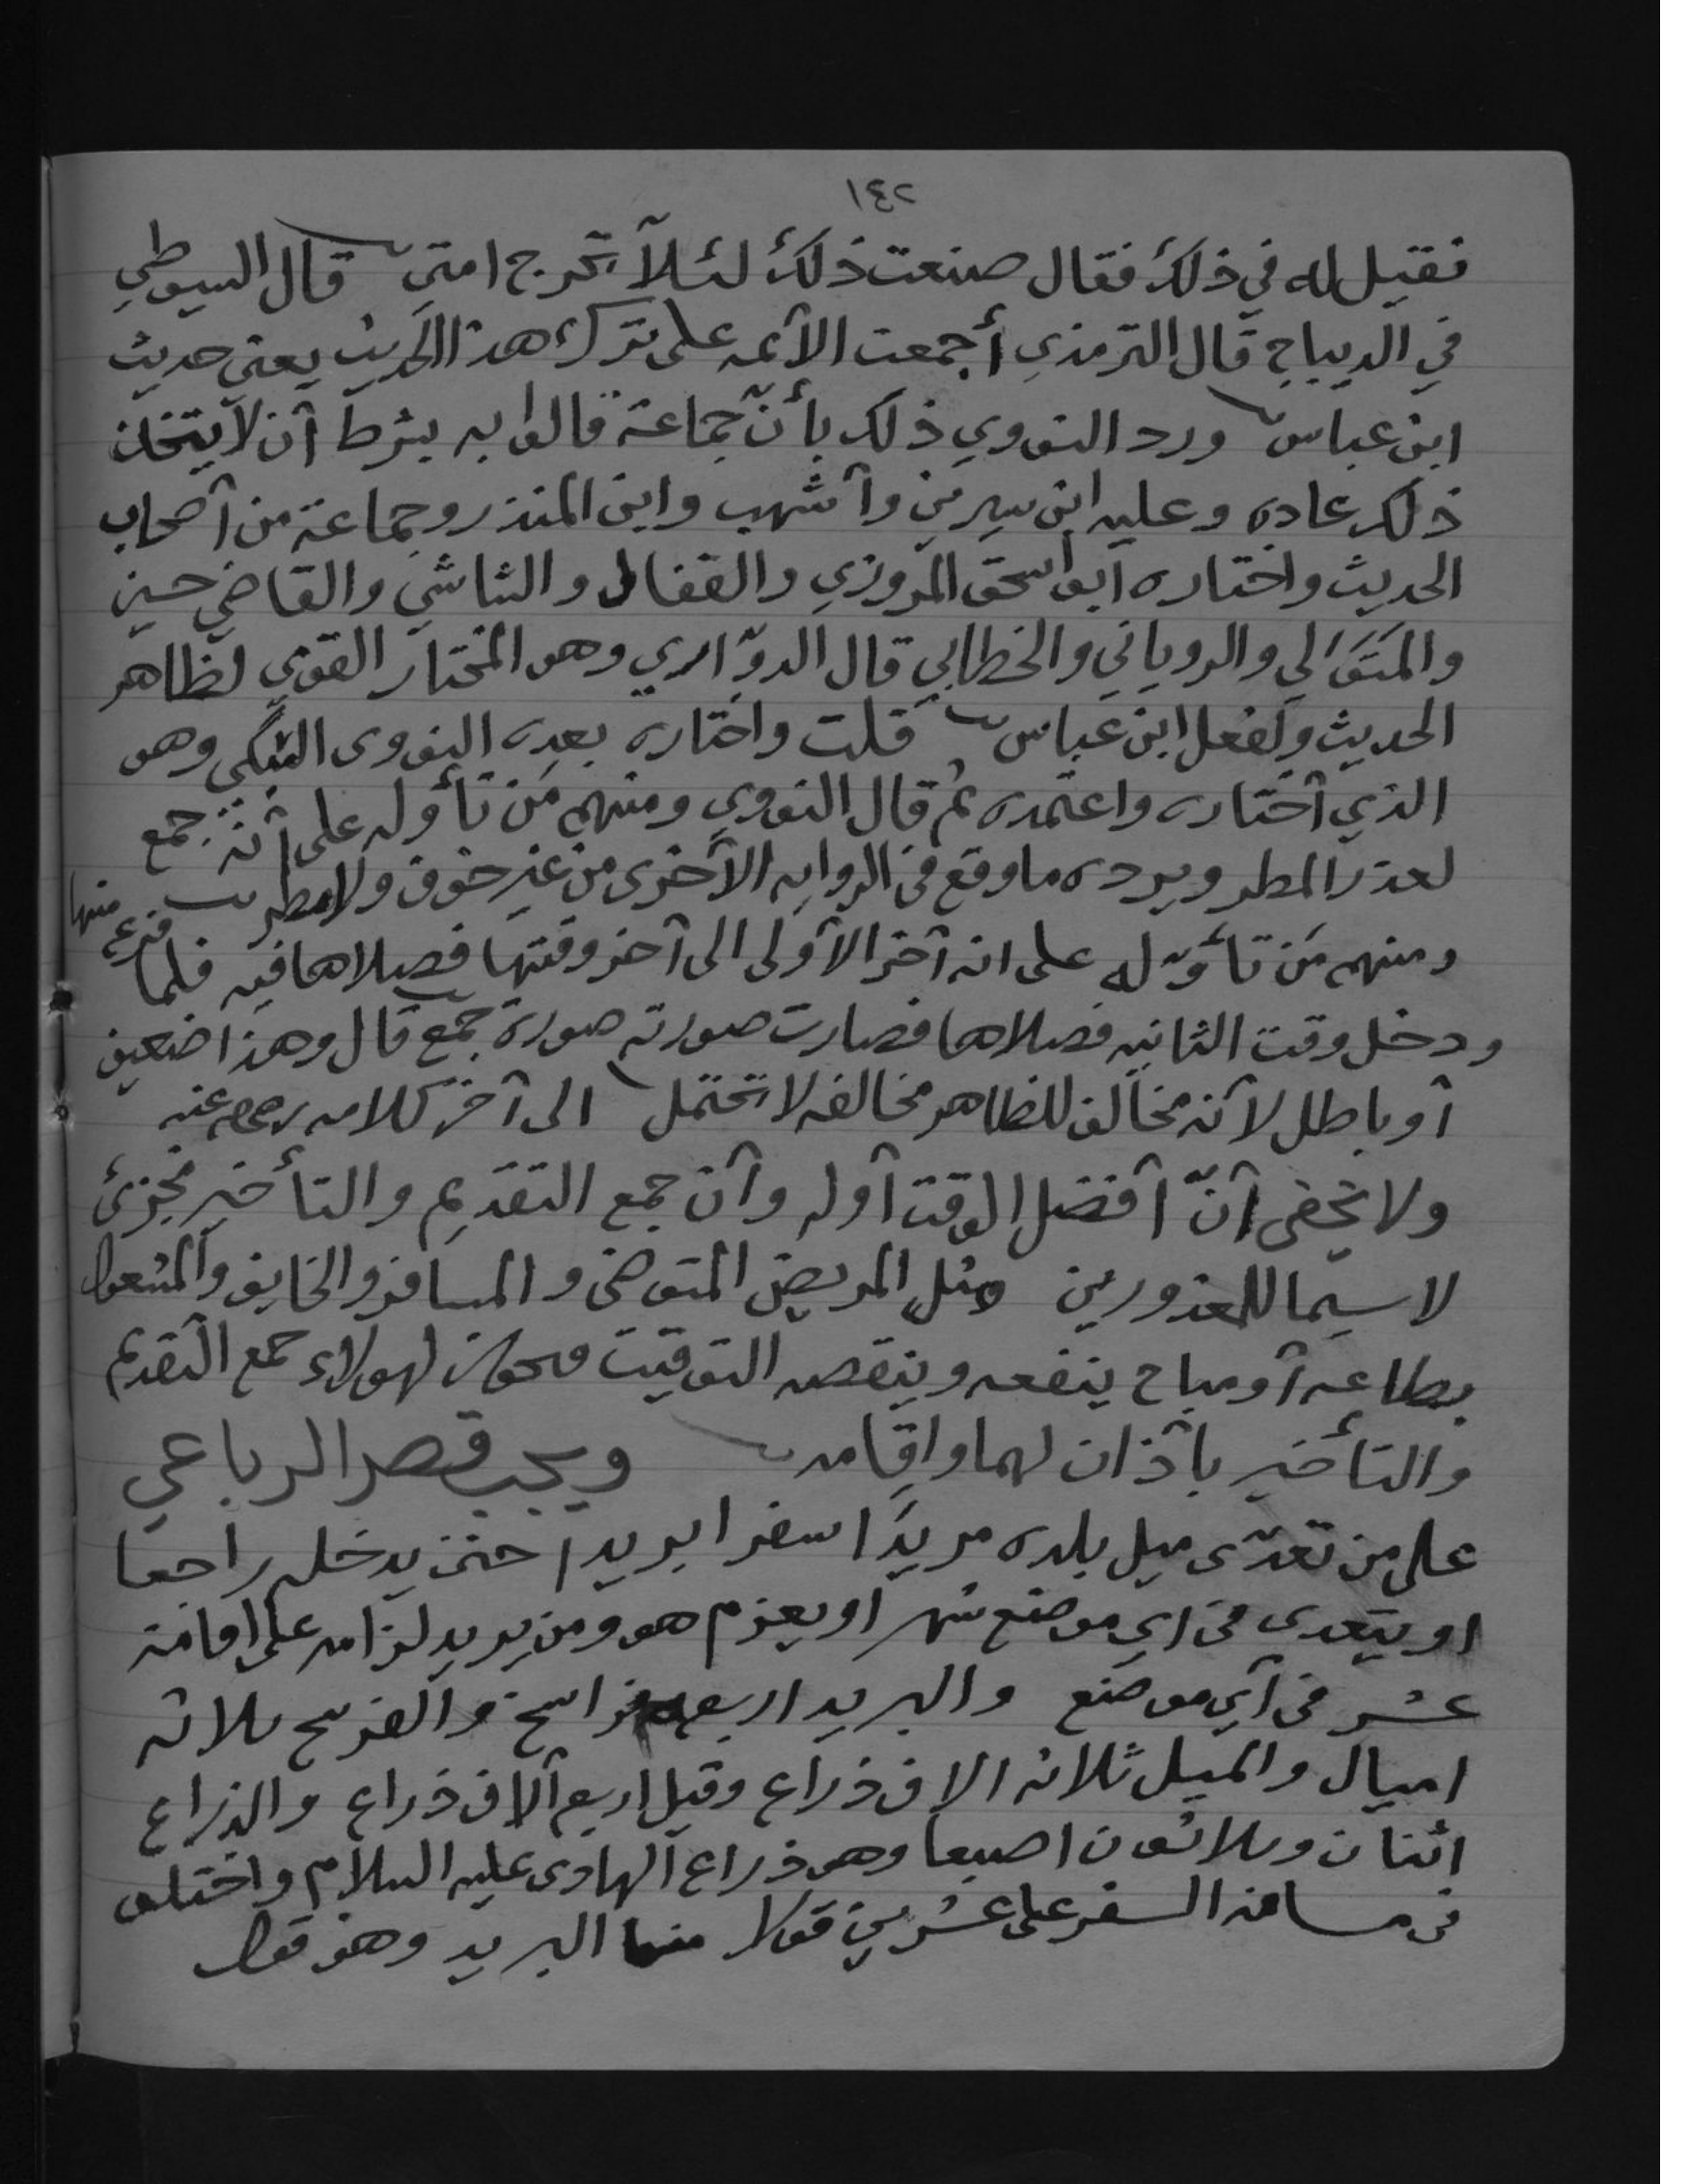 ١٤٢
فقيل له في ذلك فقال صنعت ذلك لئلا تحرج امتي قال السيوطي
في الديباج قال الترمذي أجمعت الآئمه على ترك هذا الحديث يعني حديث
ابن عباس ورد النووي ذلك بأن جماعة قالوا به بشرط آن لا يتخذ
ذلك عاده وعليه ابن سيرين وآشهب وابن المنذر وجماعة من آصحاب
الحديث واختاره آبو اسحق المروزي والقفال والشاشي والقاضي حسين
والمتوَلي والروياني والخطابي قال الدوّاري وهو المختار القوي لظاهر
الحديث ولفعل ابن عباس قلت واختاره بعده النووى السبكي وهو
الذي آختاره واعتمده ثم قال النووي ومنهم مَن تأوله على أنه جمع
لعذر المطر ويرده ما وقع في الروايه الآخرى من غير خوف ولا مطر
ومنهم مَن تأوّله على انه آخر الآولى الى آخر وقتها فصلاها فيه فلما فرغ منها
ودخل وقت الثانيه فصلاها فصارت صورته صورة جمع قال وهذا ضعيف
آو باطل لآنه مخالف للظاهر مخالفه لا تحتمل الى آخر كلامه رضي الله عنه
ولا يخفى آنّ آفضل الوقت آوله وآن جمع التقديم والتأخير مجزئ
لا سيما للمعذورين مثل المريض المتوضي والمسافر والخايف والمشغول
بطاعه آو مباح ينفعه وينقصه التوقيت فيجوز لهولاء جمع التقديم
والتأخير بآذان لهما واقامه ويجب قصر الرباعي
على من تعدّى ميل بلده مريدًا سفرا بريدا حتى يدخله راجعا
او يتعدى في اي موضع شهر او يعزم هو ومن يريد لزامه على اقامة
عشر في آي موضع والبريد اربعه فراسخ والفرسخ ثلاثه
اميال والميل ثلاثه الاف ذراع وقيل اربع آلاف ذراع والذراع
اثنان وثلاثون اصبعا وهو ذراع الهادى عليه السلام واختلف
في مسافه السفر على عشرين قولا منها البريد وهو قول